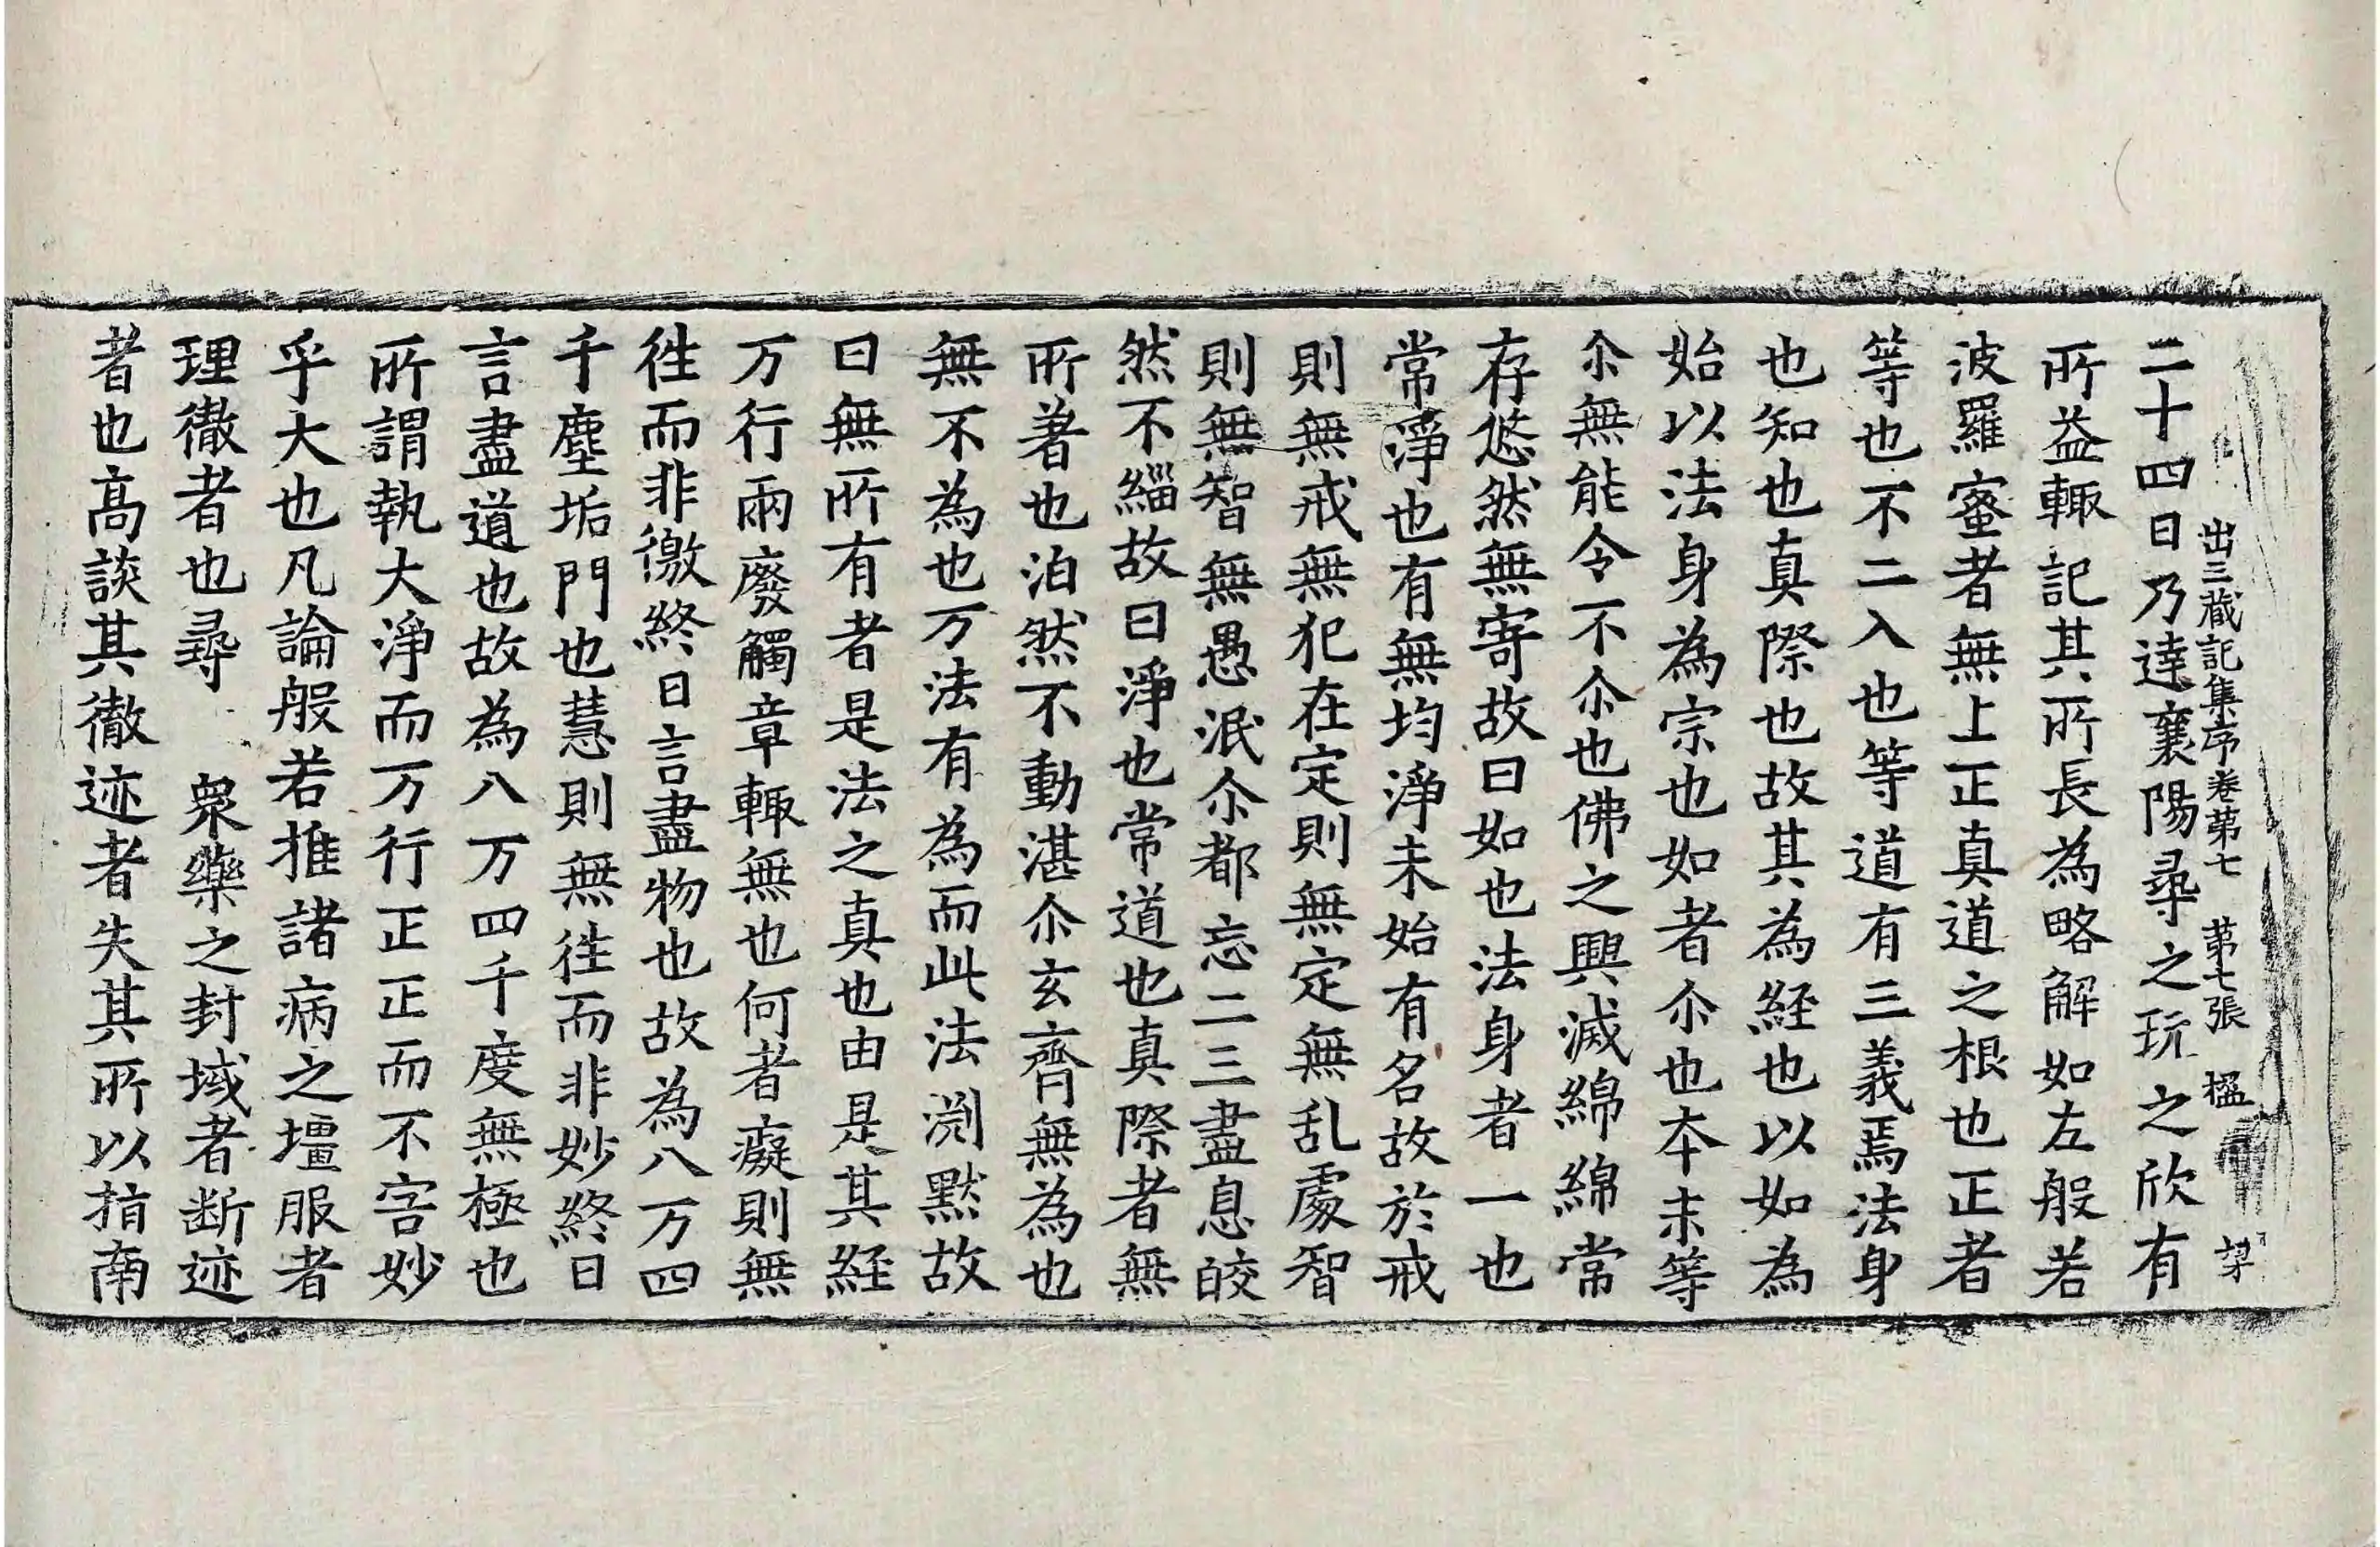 出三藏記集序卷第七 第七張 楹
二十四日乃達襄陽尋之玩之欣有
所益輙記其所長為略解如左般若
波羅蜜者無上正真道之根也正者
等也不二入也等道有三義焉法身
也知也真際也故其為経也以如為
始以法身為宗也如者尒也本末等
尒無能令不尒也佛之興滅綿綿常
存悠然無寄故曰如也法身者一也
常淨也有無均淨未始有名故於戒
則無戒無犯在定則無定無乱處智
則無智無愚泯尒都忘二三盡息皎
然不緇故曰淨也常道也真際者無
所著也泊然不動湛尒玄齊無為也
無不為也万法有為而此法渕黙故
曰無所有者是法之真也由是其経
万行兩廢觸章輙無也何者癡則無
徃而非徼終日言盡物也故為八万四
千塵垢門也慧則無徃而非妙終日
言盡道也故為八万四千度無極也
所謂執大淨而万行正正而不害妙
乎大也凡論般若推諸病之壃服者
理徹者也尋 衆藥之封域者断迹
者也高談其徹迹者失其所以指南